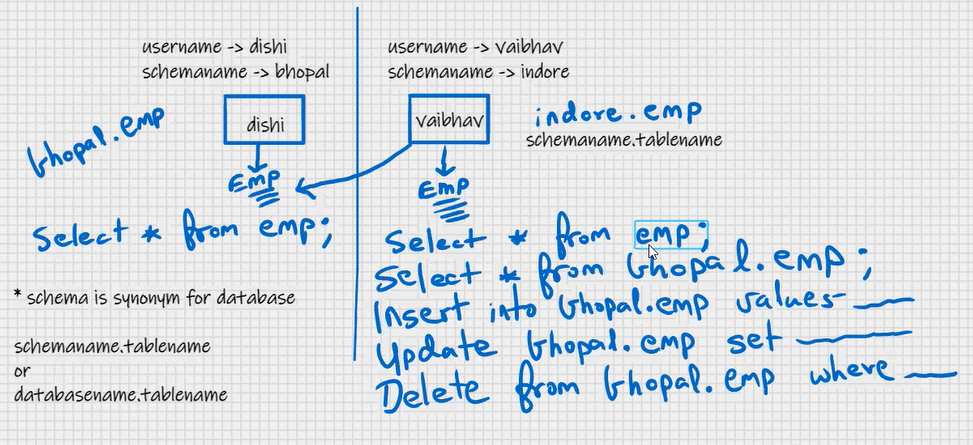 username -> dishi
schemaname -> bhopal
dishi
bhopal.emp
EMP
Select * from emp;
* schema is synonym for database
schemaname.tablename
or
databasename.tablename
username -> vaibhav
schemaname -> indore
vaibhav
indore.emp
schemaname.tablename
EMP
Select * from emp;
Select * from bhopal.emp;
Insert into bhopal.emp values
Update bhopal.emp set
Delete from bhopal.emp where